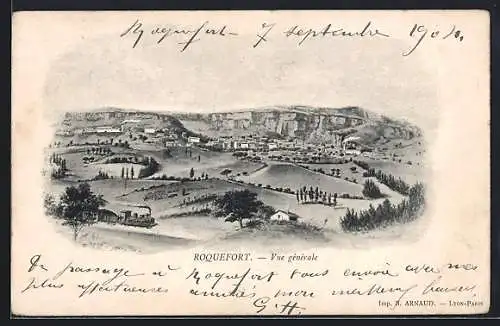 Roquefort 7 septembre 190
ROQUEFORT. — Vue générale
De passage à Roquefort vous envoie avec mes
plus affectueuses amitiés mon meilleur baiser
G. H.
Imp. B. ARNAUD. — LYON-PARIS